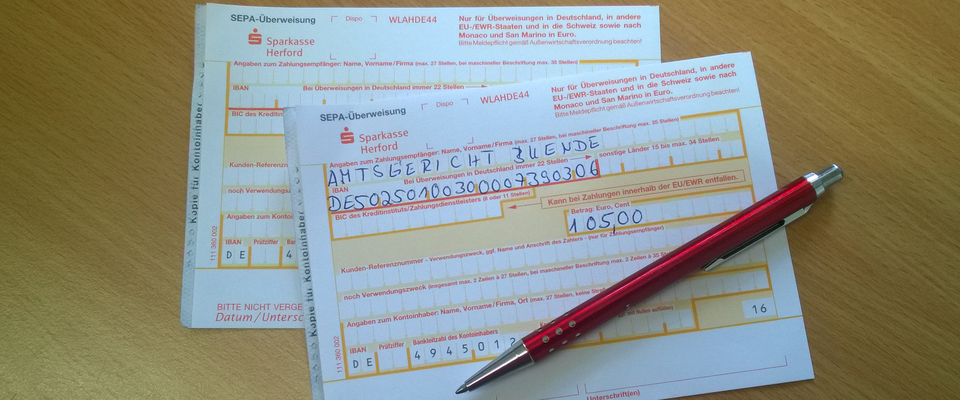 SEPA-Überweisung
Dispo
WLAHDE44
Nur für Überweisungen in Deutschland, in andere
EU-/EWR-Staaten und in die Schweiz sowie nach
Monaco und San Marino in Euro.
Bitte Meldepflicht gemäß Außenwirtschaftsverordnung beachten!
Sparkasse
Herford
Angaben zum Zahlungsempfänger: Name, Vorname/Firma (max. 27 Stellen, bei maschineller Beschriftung max. 35 Stellen)
IBAN
Bei Überweisungen in Deutschland immer 22 Stellen
BIC des Kreditins
Kunden-Referenznum
noch Verwendungs
Angaben zum Kontoin
IBAN Prüfziffer Ban
DE 4
111 360 002
Kopie für Kontoinhaber
BITTE NICHT VERGE
Datum/Untersc
SEPA-Überweisung
Dispo
WLAHDE44
Nur für Überweisungen in Deutschland, in andere
EU-/EWR-Staaten und in die Schweiz sowie nach
Monaco und San Marino in Euro.
Bitte Meldepflicht gemäß Außenwirtschaftsverordnung beachten!
Sparkasse
Herford
Angaben zum Zahlungsempfänger: Name, Vorname/Firma (max. 27 Stellen, bei maschineller Beschriftung max. 35 Stellen)
AMTSGERICHT BUENDE
IBAN
Bei Überweisungen in Deutschland immer 22 Stellen
sonstige Länder 15 bis max. 34 Stellen
DE50250100300007390306
BIC des Kreditinstituts/Zahlungsdienstleisters (8 oder 11 Stellen)
Kann bei Zahlungen innerhalb der EU/EWR entfallen.
Betrag: Euro, Cent
105,00
Kunden-Referenznummer - Verwendungszweck, ggf. Name und Anschrift des Zahlers - (nur für Zahlungsempfänger)
noch Verwendungszweck (insgesamt max. 2 Zeilen à 27 Stellen, bei maschineller Beschriftung max. 2 Zeilen à 35
Angaben zum Kontoinhaber: Name, Vorname/Firma, Ort (max. 27 Stellen, keine
IBAN Prüfziffer Bankleitzahl des Kontoinhabers
DE 4945012
16
111 360 002
Kopie für Kontoinhaber
Unterschrift(en)